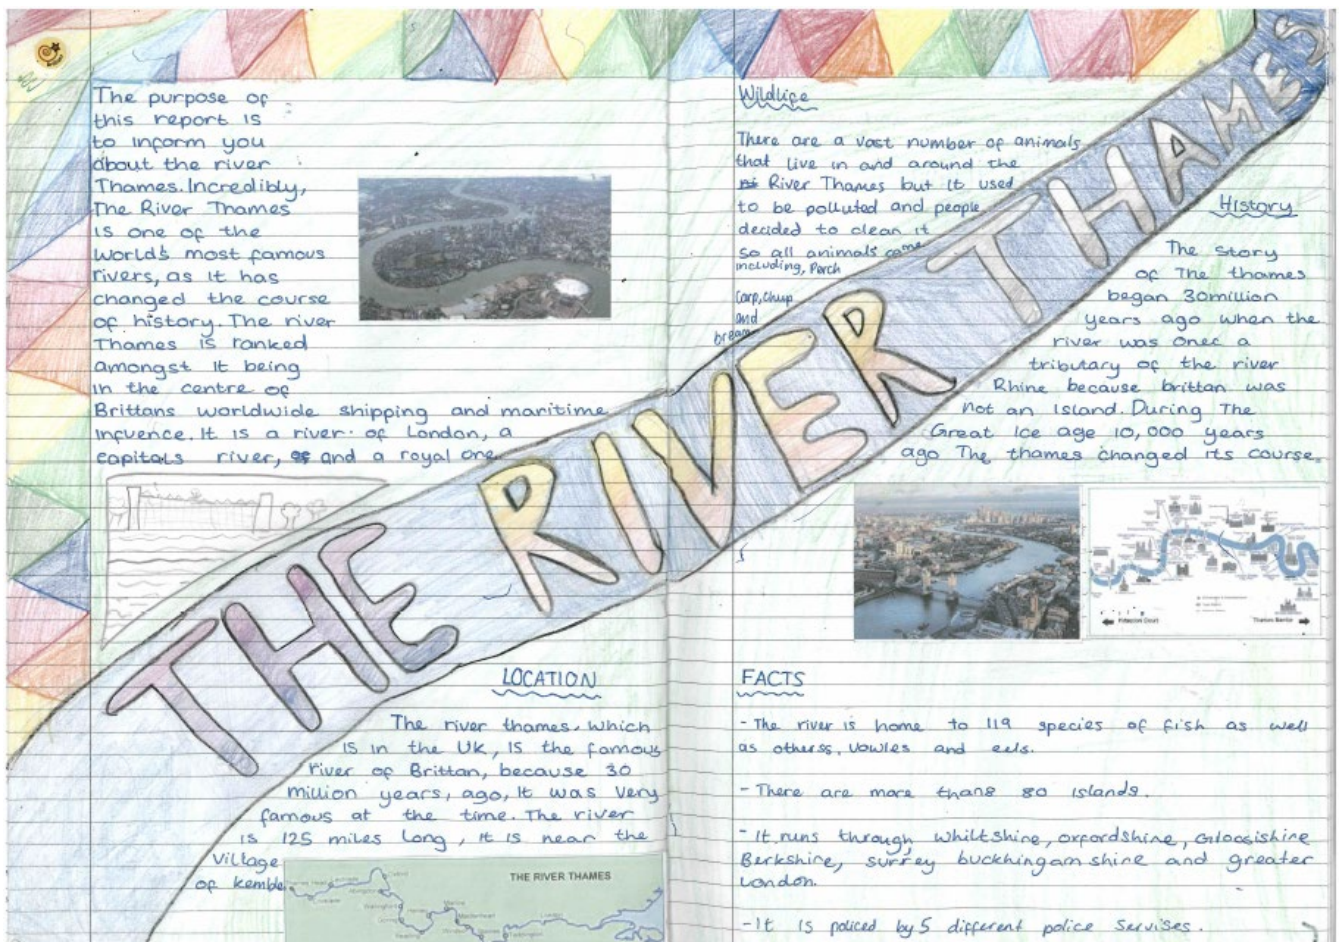 The purpose of
this report is
to inform you
about the river
Thames. Incredibly,
The River Thames
is one of the
world's most famous
rivers, as it has
changed the course
of history. The river
Thames is ranked
amongst it being
in the centre of
Brittans worldwide shipping and maritime
infuence. It is a river of London, a
capitals river, and a royal one.
THE RIVER THAMES
LOCATION
The river thames. which
is in the UK, is the famous
river of Brittan, because 30
million years, ago, It was very
famous at the time. The river
is 125 miles long, it is near the
Village
of Kemble
THE RIVER THAMES
Wildlife
There are a vast number of animals
that live in and around the
River Thames but it used
to be polluted and people
decided to clean it
so all animals came
including, Perch
Carp, Chup
and
bream
History
The story
of The thames
began 30million
years ago when the
river was onec a
tributary of the river
Rhine because brittan was
not an Island. During The
Great Ice age 10,000 years
ago The thames changed its course.
Thames Barrier
FACTS
- The river is home to 119 species of fish as well
as otherss, Vowles and eels.
- There are more thans 80 Islands.
- It runs through Whiltshire, oxfordshire, Glocishire
Berkshire, surrey buckhingamshire and greater
London.
- It is policed by 5 different police servises.